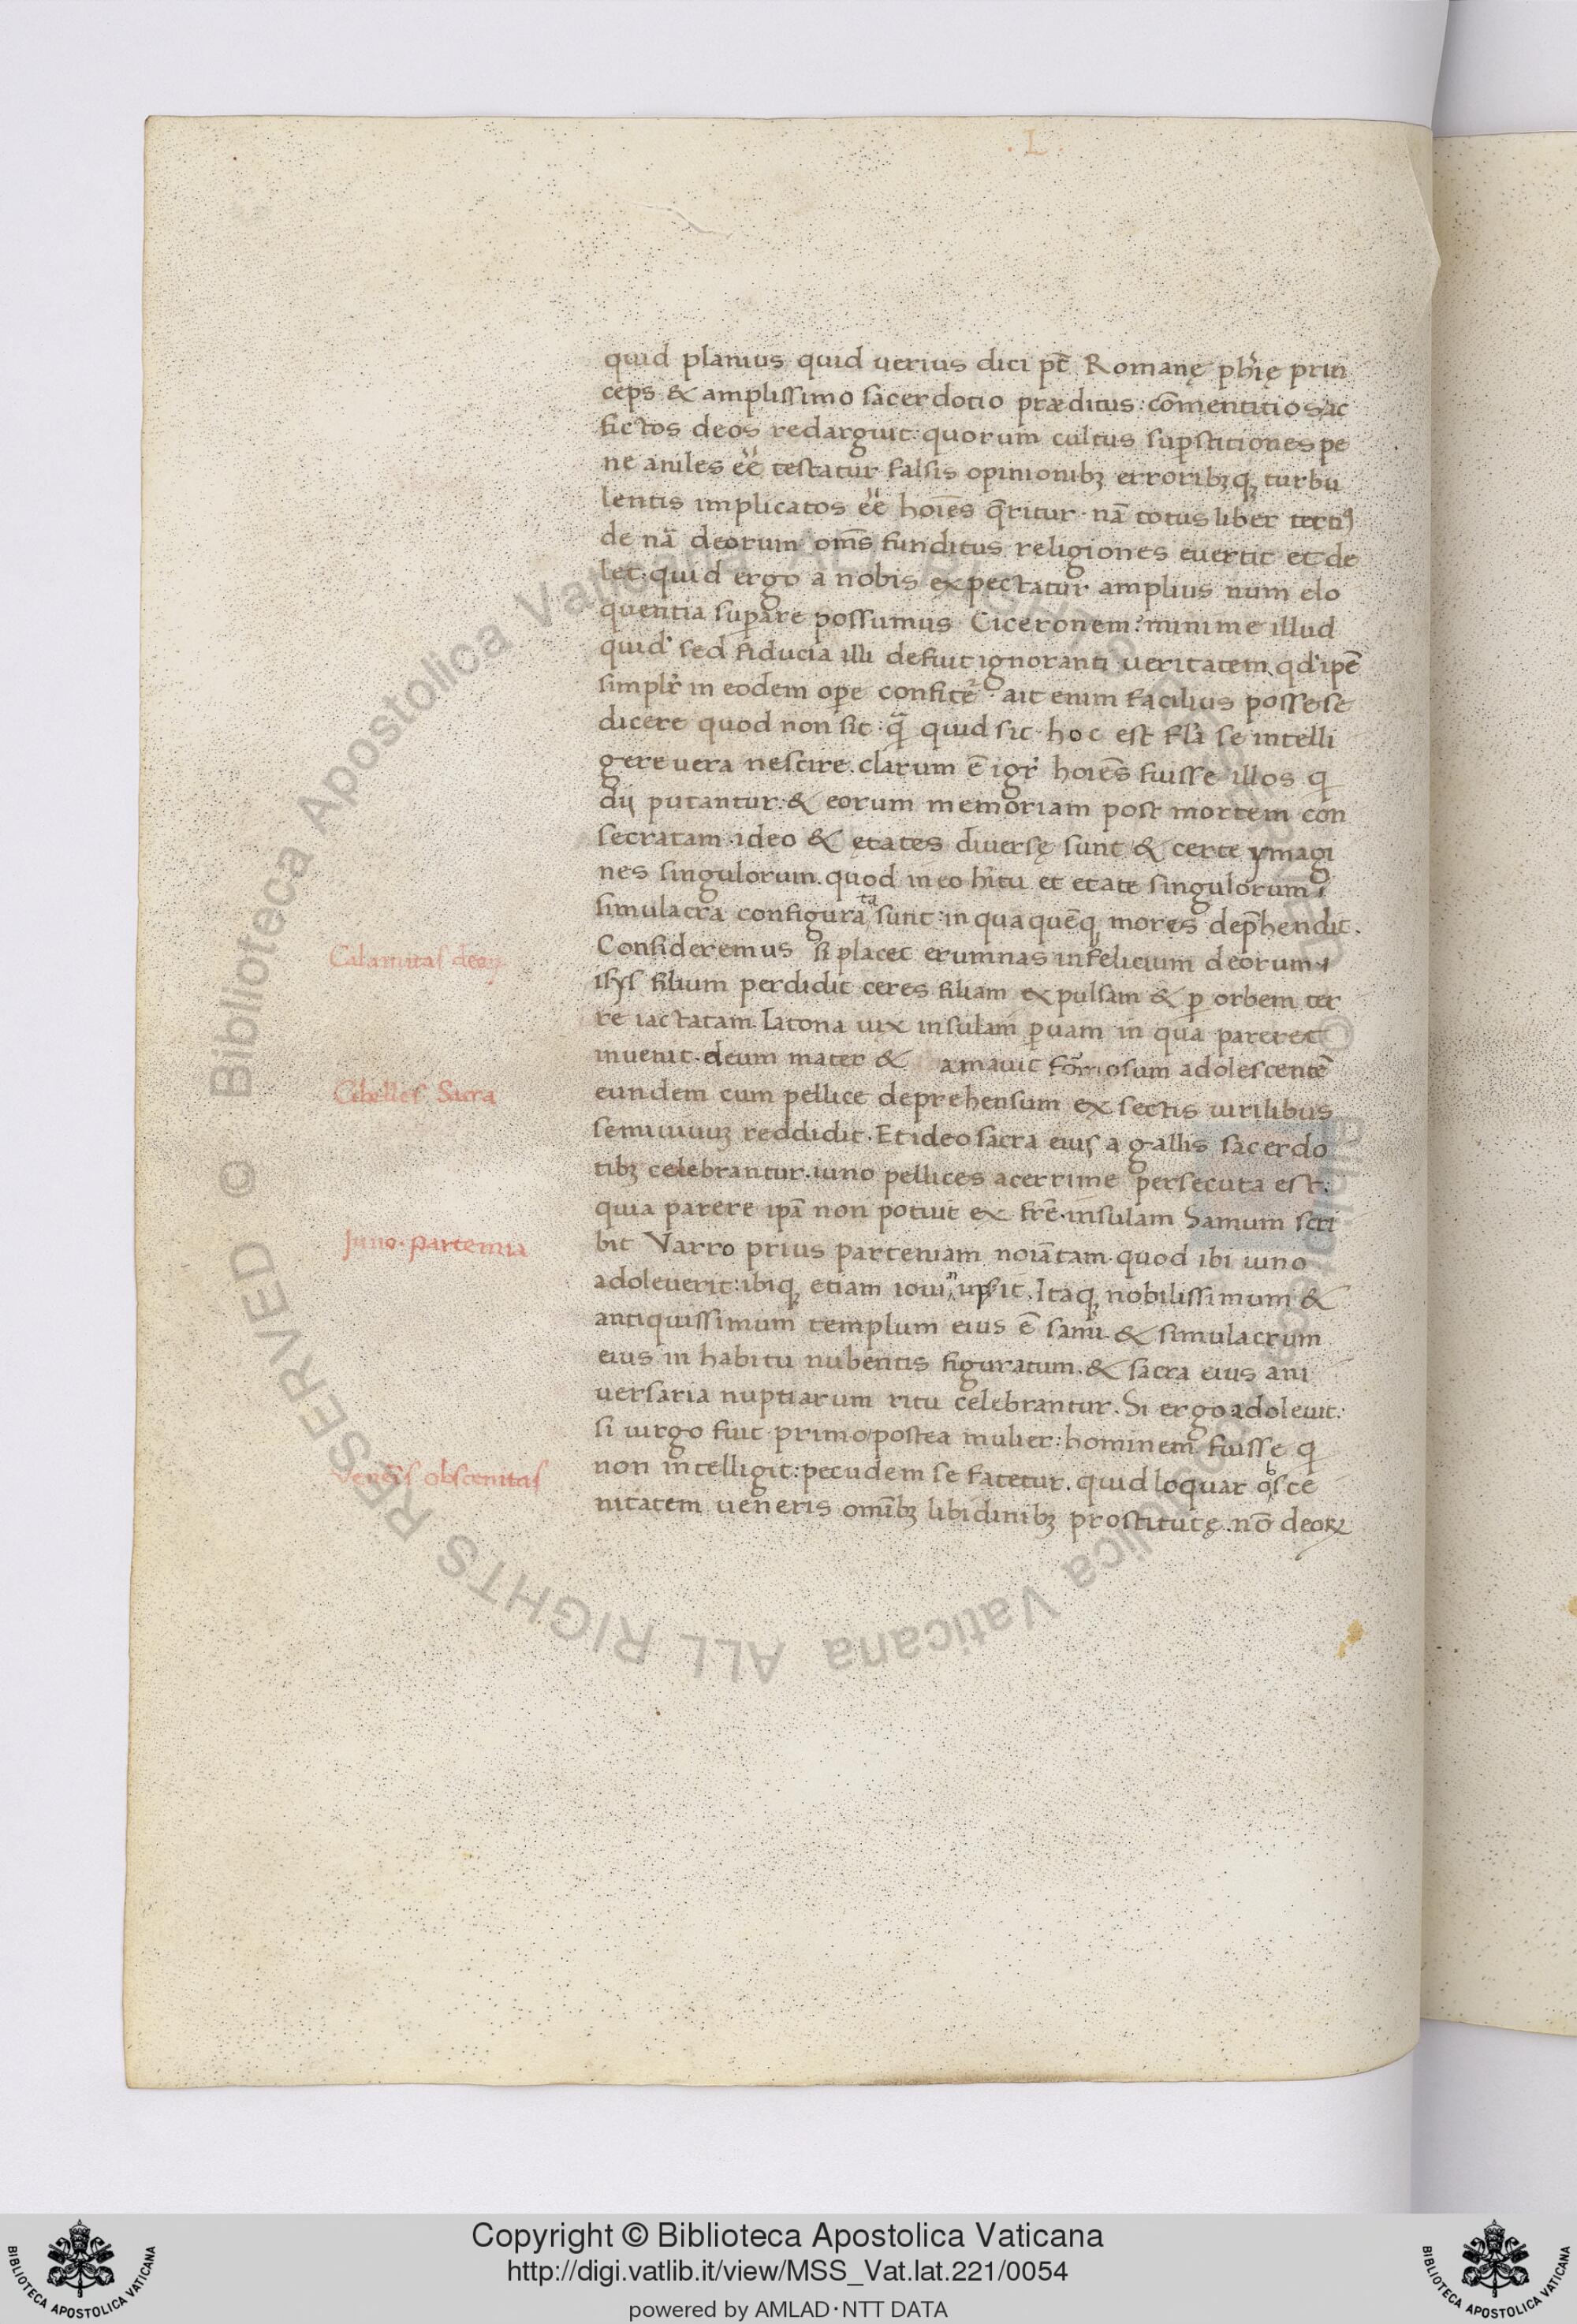 . L .
quid planius quid uerius dici pt̄ Romanę ph̄ię prin
ceps & amplissimo sacerdotio præditus: cōmentitios ac
fictos deos redarguit: quorum cultus suꝑstitiones pe
ne aniles eē testatur falsis opinionibꝫ erroribꝫqꝫ turbu
lentis implicatos eē hoīes q̄ritur. nā totus liber tertiꝯ
de nā deorum om̄s funditus religiones euertit et de
let: quid ergo a nobis expectatur amplius num elo
quentia suꝑare possumus Ciceronem: minime illud
quid' sed fiducia illi defuit ignoranti ueritatem qd' ip̄e
simplr̄ in eodem oꝑe confitet̄. ait enim facilius posse se
dicere quod non sit: q̄ quid sit hoc est fl̄a se intelli
gere uera nescire. clarum ē igr̄ hoīes fuisse illos q
dij putantur: & eorum memoriam post mortem con
secratam. ideo & ętates diuersę sunt & certe ymagi
nes singulorum. quod in eo h̄itu et etate singulorum
simulacra configurata sunt: in qua quēqꝫ mores dep̄hendit.
Calamitas deoꝝ
Consideremus si placet erumnas infelicium deorum
isys filium perdidit ceres filiam expulsam & ꝑ orbem ter
re iactatam. Latona uix insulam ꝑuam in qua pareret
inuenit. deum mater & amauit formosum adolescentē
Cibelles Sacra
eundem cum pellice deprehensum exsectis uirilibus
semiuiuuꝫ reddidit. Et ideo sacra eius a gallis sacerdo
tibꝫ celebrantur. iuno pellices acerrime persecuta est:
quia parere ip̄a non potuit ex fr̄e. insulam Samum scri
Juno. partenia
bit Varro prius parteniam noīatam. quod ibi iuno
adoleuerit: ibiqꝫ etiam ioui nupsit. Itaqꝫ nobilissimum &
antiquissimum templum eius ē sami. & simulacrum
eius in habitu nubentis figuratum. & sacra eius ani
uersaria nuptiarum ritu celebrantur. Si ergo adoleuit:
si uirgo fuit primo/postea mulier: hominem fuisse q
Veneris obscenitas
non intelligit: pecudem se fatetur. quid loquar obsce
nitatem ueneris omībꝫ libidinibꝫ prostitutę. nō deoꝝ
Copyright © Biblioteca Apostolica Vaticana
http://digi.vatlib.it/view/MSS_Vat.lat.221/0054
powered by AMLAD·NTT DATA
BIBLIOTECA APOSTOLICA VATICANA
BIBLIOTECA APOSTOLICA VATICANA
© Biblioteca Apostolica Vaticana ALL RIGHTS RESERVED © Biblioteca Apostolica Vaticana ALL RIGHTS RESERVED